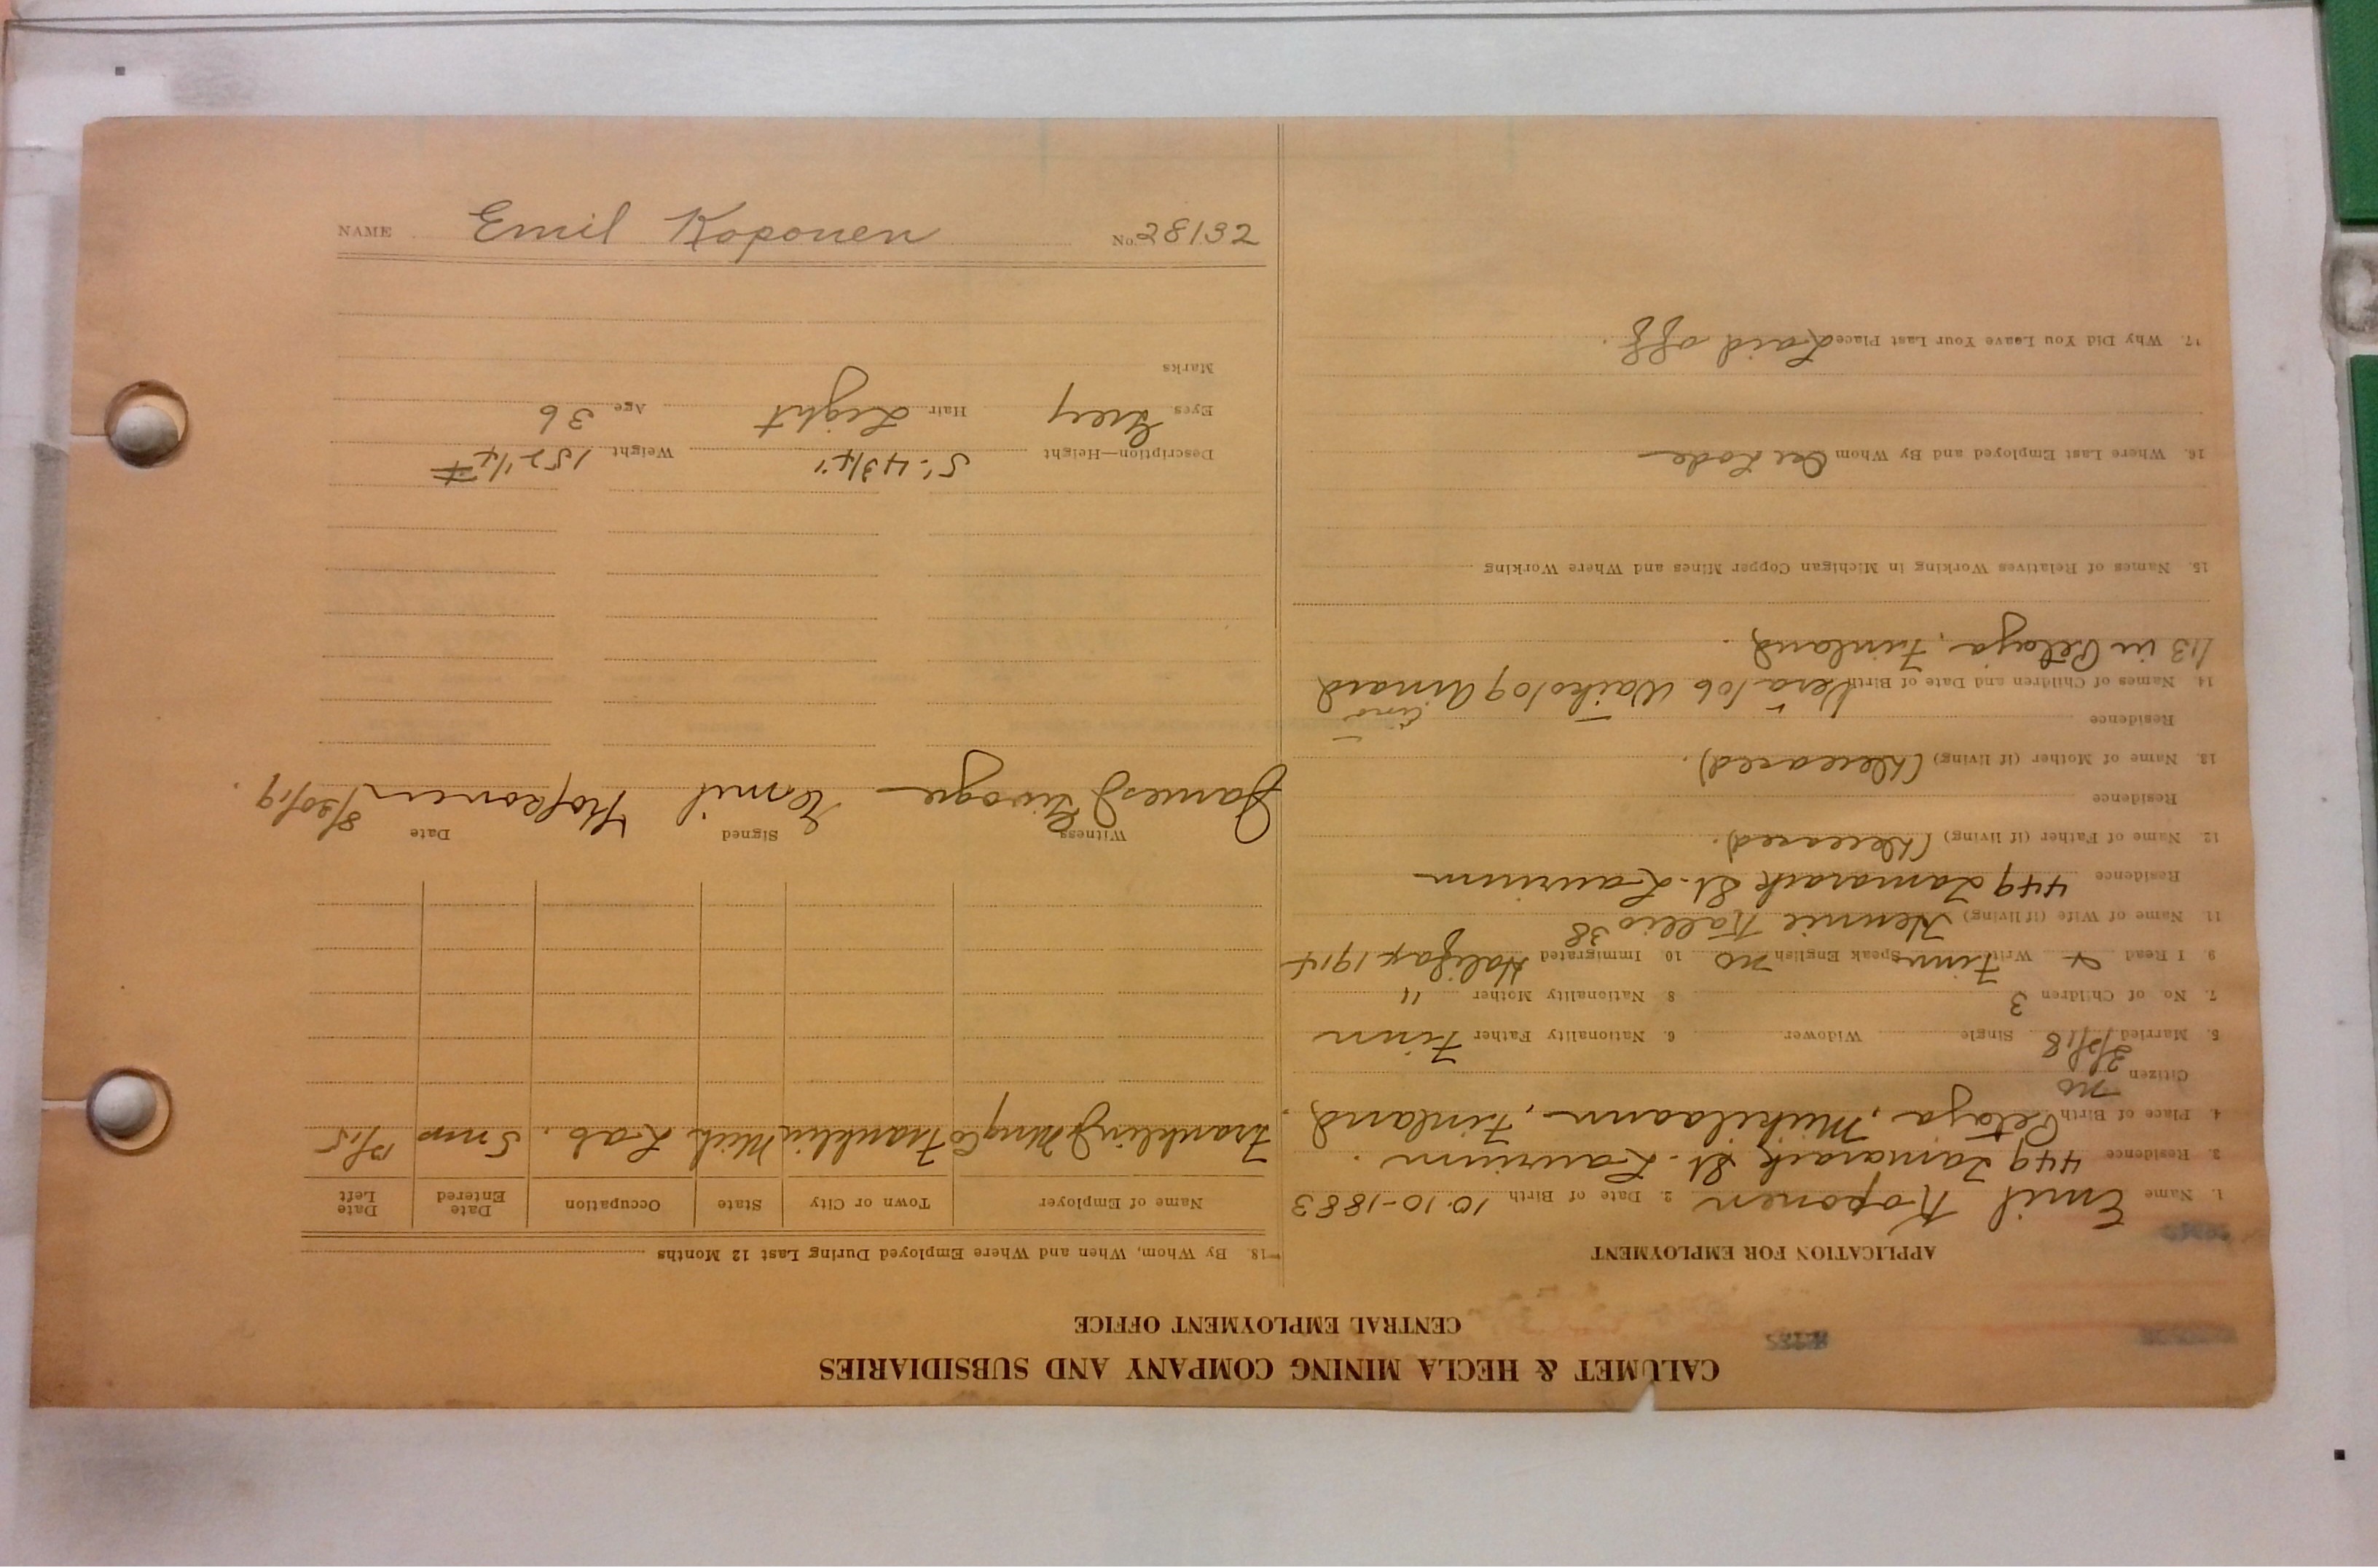 CALUMET & HECLA MINING COMPANY AND SUBSIDIARIES
CENTRAL EMPLOYMENT OFFICE
APPLICATION FOR EMPLOYMENT
1. Name Emil Koponen 2. Date of Birth 10-10-1883
3. Residence 449 Tamarack St. Laurium.
4. Place of Birth Finland
Citizen no
5. Married 3/2/18 Single Widower 6. Nationality Father Finn
7. No. of Children 3 8 Nationality Mother "
9 I Read & Write Finn Speak English no 10 Immigrated Halifax 1914
11. Name of Wife (if living) Hennie Kallio 38
Residence 449 Tamarack St. Laurium
12. Name of Father (if living) (Deceased).
Residence
13. Name of Mother (if living) (Deceased).
Residence
14. Names of Children and Date of Birth Vera/06 Waiko/09 Armard
1/13 in Finland.
15. Names of Relatives Working in Michigan Copper Mines and Where Working
16. Where Last Employed and By Whom Lode
17. Why Did You Leave Your Last Place Laid off.
18. By Whom, When and Where Employed During Last 12 Months
Name of Employer Town or City State Occupation Date Entered Date Left
Franklin Mng Co Franklin Mich Lab. 5 mos
Witness Signed Date
James Emil Koponen 8/20/19.
Description—Height 5'-4 3/4" Weight 152 1/4 #
Eyes Grey Hair Light Age 36
Marks
NAME Emil Koponen No. 28132